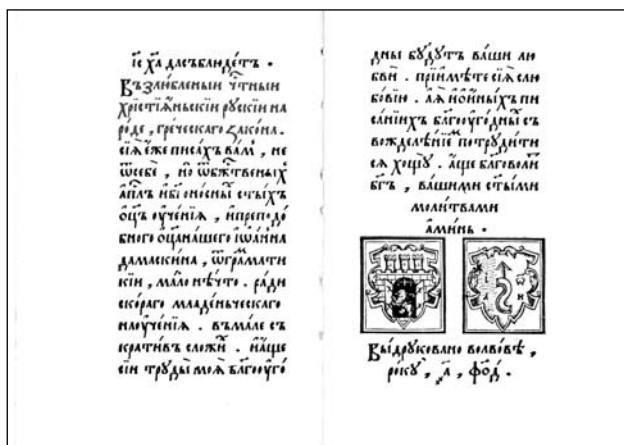 і҃с х҃а дасъблюдетъ .
Възлюбленыи ч҃тныи
хрїстїѧ́ньскїи рускїи на
ро́де , гре́ческаго зако́на .
сїѧ̀ еже писа́хъ ва́мⸯ , не
ѿсебѐ , но̀ ѿбж҃твеныхⸯ
ап҃лъ ибг҃оно́сны с҃тыⷯ
ѻц҃ъ оуче́нїѧ , ипреподо́
бного ѻц҃ана́шего їѡа́нна
дамаски́на , ѿгра́мати
кїи , ма́ло нѣ́что . ра́ди
ско́раго младе́ньческаго
наоуче́нїѧ . въма́ле съ
крати́въ сложи́хⸯ . иа́ще
сїи труды̀ моѧ̀ бл҃гооуго́
дны бу́дутъ ва́ши лю
бви́ . прїимѣ́те сїѧ̀ слю
бо́вїю . а́ѧ ины́хъ пи
са́нїихъ бл҃гооуго́дныхъ съ
вожделѣ́нїемⸯ потруди́ти
сѧ хощу̀ . а́ще бл҃говоли́
бг҃ъ , ва́шими с҃тыми
моли́твами
а́минь .
І Ѡ
А Н
Вы́друковано волво́вѣ ,
ро́ку , ҂а҃ , ф҃од .